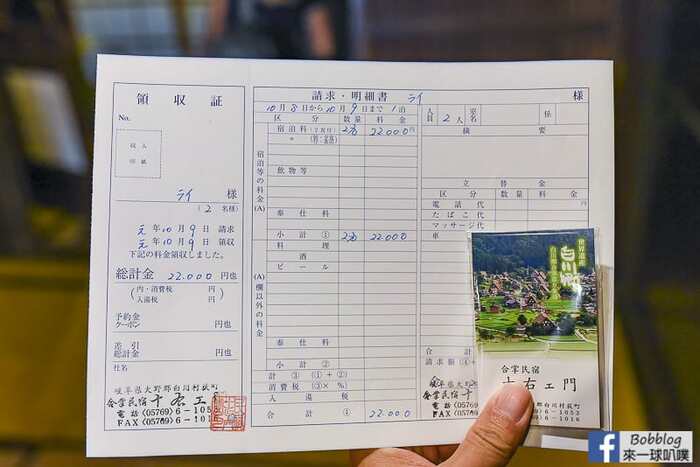 領収証
No.
収入
印紙
ライ 様
(2 名様)
元年10月9日 請求
元年10月9日 領収
下記の料金領収しました。
総計金 22.000 円也
(内・消費税 円也)
入湯税
予約金
クーポン 円也
差引
総計金 円也
社名
岐阜県大野郡白川村荻町
合掌民宿 十右エ門
電話(05769)6-1053
FAX(05769)6-1016
請求・明細書 ライ 様
10月8日から10月9日まで1泊
区分 数量 料金
宿泊料(2食付) 2名 22.000円
宿泊等の料金(A)
飲物等
奉仕料
小計① 2名 22.000
(A)欄以外の料金
料理
酒
ビール
奉仕料
小計②
計③(①+②)
消費税(③×%)
入湯税
合計④ 22.000
人員 2人 室名 係
摘要
立替金
区分 数量 料金
電話代
たばこ代
マッサージ代
車
合計
請求額
岐阜県
合掌民宿 十
電話(05769)6
FAX(05769)6
世界遺産
白川郷
合掌民宿
十右エ門
白川村荻町
6-1053
6-1016
Bobblog
來一球叭噗